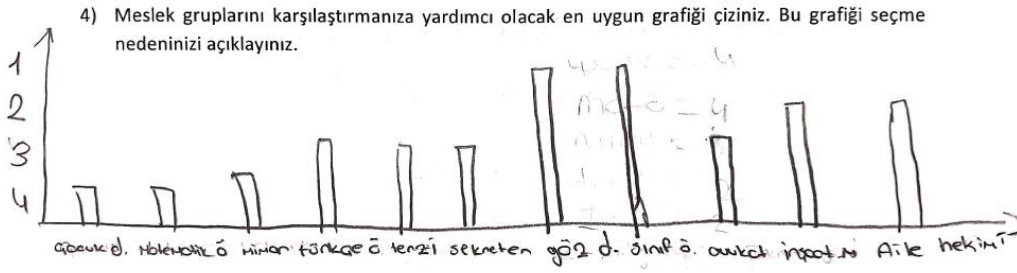 4) Meslek gruplarını karşılaştırmanıza yardımcı olacak en uygun grafiği çiziniz. Bu grafiği seçme
nedeninizi açıklayınız.
1
2
3
4
çocuk d. Matematik ö mimar türkçe ö terzi sekreter göz d. sınıf ö. avukat inşaat m Aile hekimi